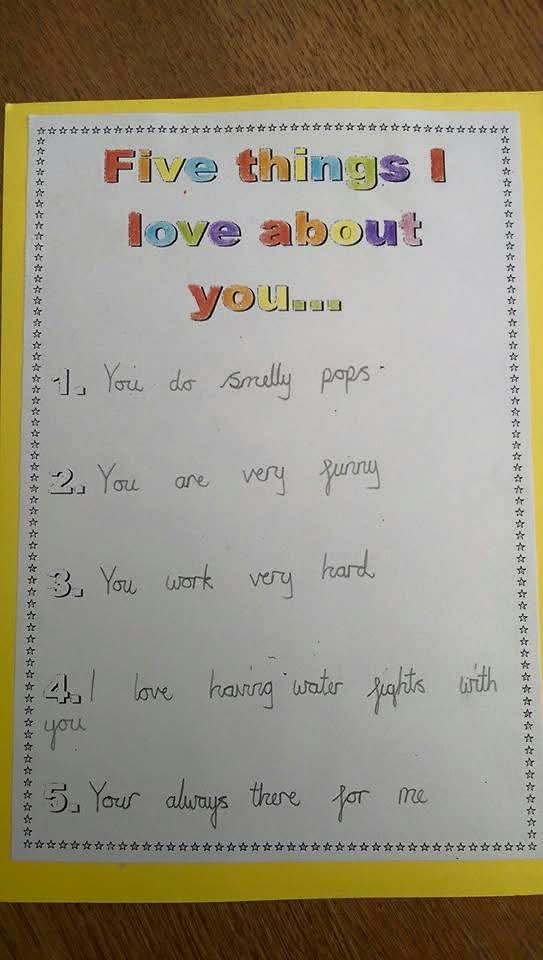 Five things I
love about
you...
1. You do smelly pops.
2. You are very funny
3. You work very hard
4. I love having water fights with
you
5. Your always there for me